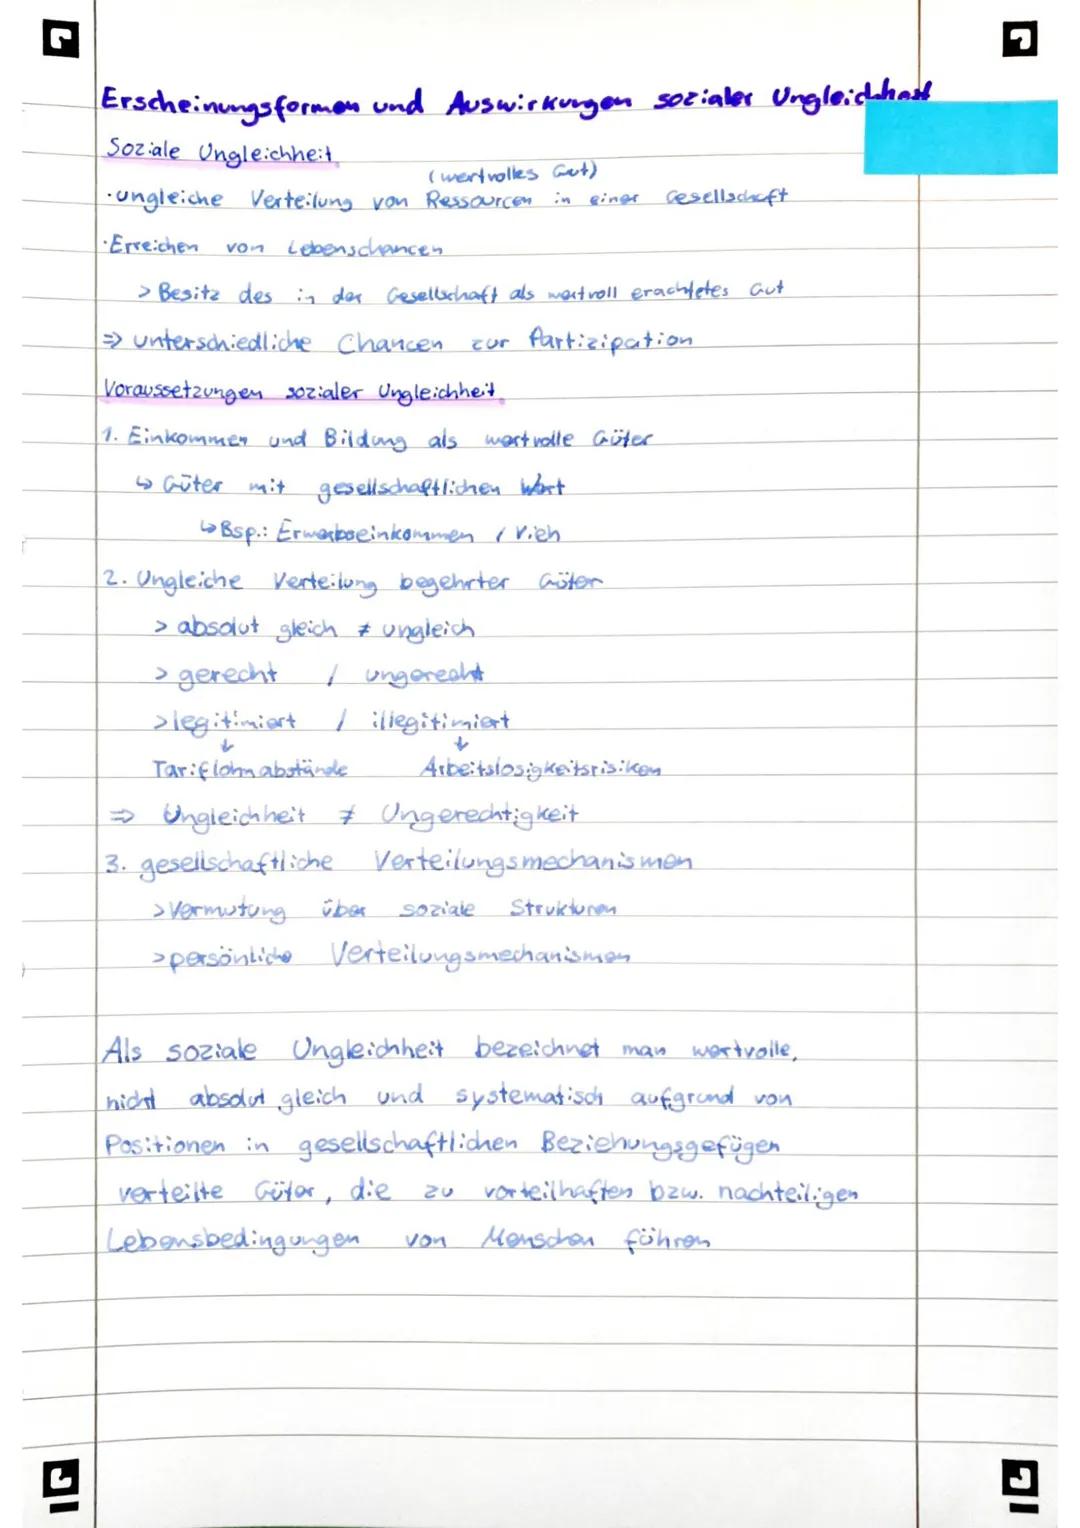 Erscheinungsformen und Auswirkungen sozialer Ungleichheit
Soziale Ungleichheit
(wertvolles Gut)
·ungleiche Verteilung von Ressourcen in einer Gesellschaft
·Erreichen von Lebenschancen
> Besitz des in der Gesellschaft als wertvoll erachtetes Gut
⇒ unterschiedliche Chancen zur Partizipation
Voraussetzungen sozialer Ungleichheit
1. Einkommen und Bildung als wertvolle Güter
↳ Güter mit gesellschaftlichen Wert
↳ Bsp.: Erwerbseinkommen / Vieh
2. Ungleiche Verteilung begehrter Güter
> absolut gleich ≠ ungleich
> gerecht / ungerecht
> legitimiert / illegitimiert
↓ ↓
Tariflohnabstände Arbeitslosigkeitsrisiken
⇒ Ungleichheit ≠ Ungerechtigkeit
3. gesellschaftliche Verteilungsmechanismen
> Vermutung über soziale Strukturen
> persönliche Verteilungsmechanismen
Als soziale Ungleichheit bezeichnet man wertvolle,
nicht absolut gleich und systematisch aufgrund von
Positionen in gesellschaftlichen Beziehungsgefügen
verteilte Güter, die zu vorteilhaften bzw. nachteiligen
Lebensbedingungen von Menschen führen